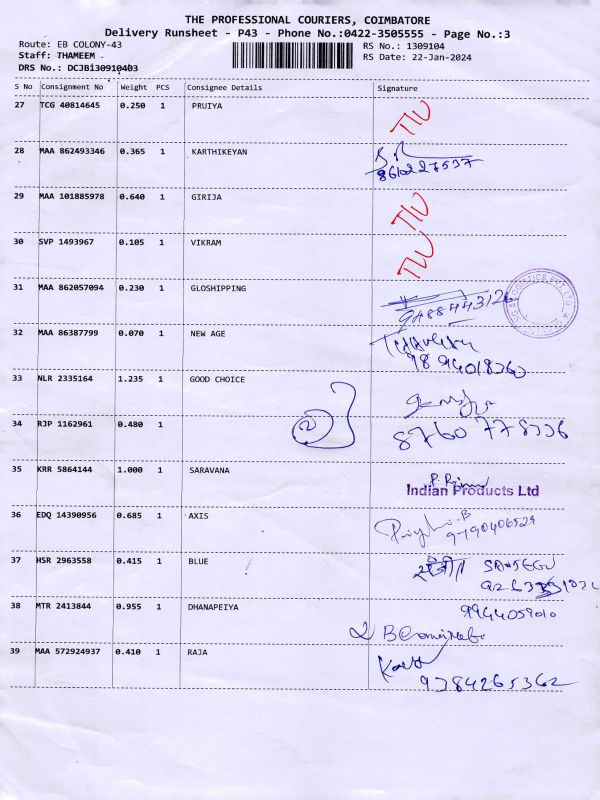 THE PROFESSIONAL COURIERS, COIMBATORE
Delivery Runsheet - P43 - Phone No.:0422-3505555 - Page No.:3
Route: EB COLONY-43 RS No.: 1309104
Staff: THAMEEM RS Date: 22-Jan-2024
DRS No.: DCJB130910403
S No Consignment No Weight PCS Consignee Details Signature
27 TCG 40814645 0.250 1 PRUIYA
28 MAA 862493346 0.365 1 KARTHIKEYAN
8610227537
29 MAA 101885978 0.640 1 GIRIJA
30 SVP 1493967 0.105 1 VIKRAM
31 MAA 862057094 0.230 1 GLOSHIPPING
32 MAA 86387799 0.070 1 NEW AGE
9894018360
33 NLR 2335164 1.235 1 GOOD CHOICE
34 RJP 1162961 0.480 1 2
8760778336
35 KRR 5864144 1.000 1 SARAVANA
Indian Products Ltd
36 EDQ 14390956 0.685 1 AXIS
9790406529
37 HSR 2963558 0.415 1 BLUE
38 MTR 2413844 0.955 1 DHANAPEIYA 9944059010
39 MAA 572924937 0.410 1 RAJA
9784265362